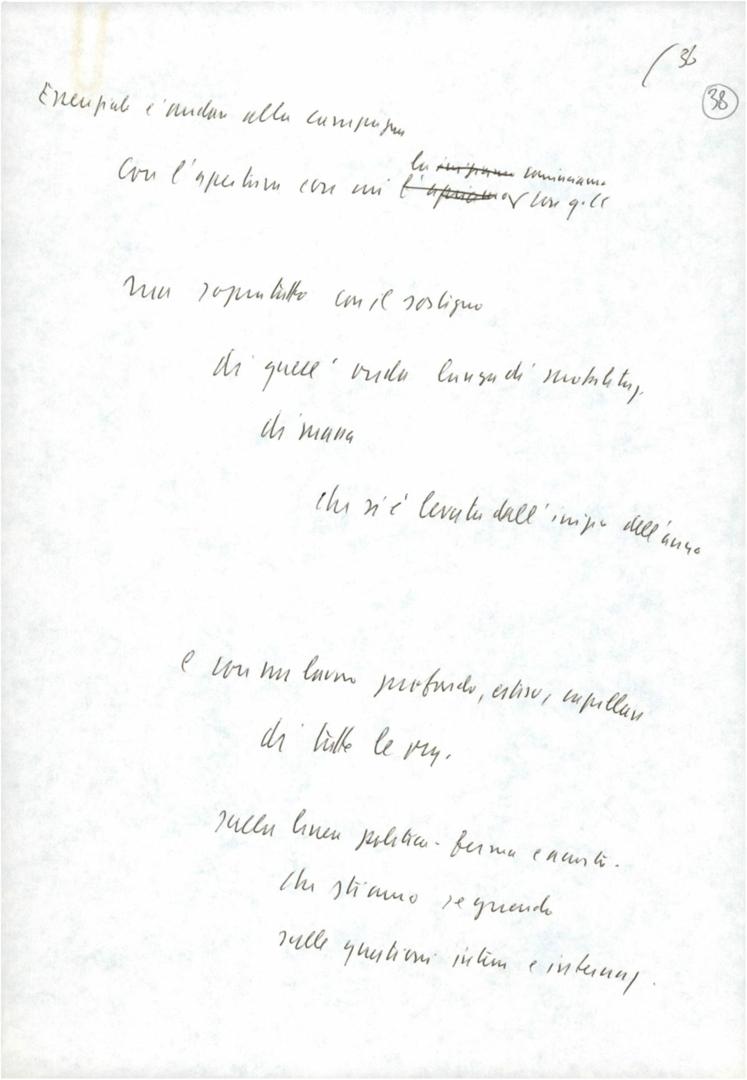 36
38
Essenziale è andare alla campagna
la cominciamo
Con l'apertura con cui l'apriamo
ma sopratutto con il sostegno
di quell'onda lunga di mobilitaz.
di massa
che si è levata dall'inizio dell'anno
e con un lavoro profondo, esteso, capillare
di tutte le org.
sulla linea politica - ferma e
che stiamo seguendo
sulle questioni interne e internaz.